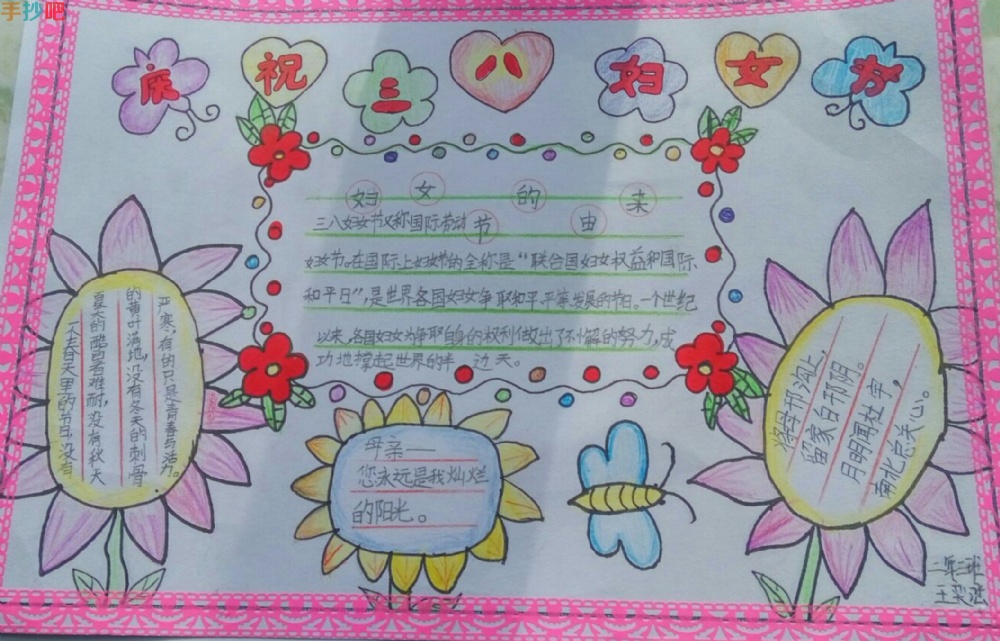 手抄吧
庆祝三八妇女节
妇女的来
三八妇女节又称国际劳动 节 由
妇女节。在国际上妇女节的全称是“联合国妇女权益和国际
和平日”,是世界各国妇女争取和平、平等、发展的节日。一个世纪
以来,各国妇女为争取自身的权利做出了不懈的努力,成
功地撑起世界的半边天。
一个春天里的节日,没有
夏天的酷暑难耐,没有秋天
的黄叶满地,没有冬天的刺骨
严寒,有的只是青春与活力。
母亲——
您永远是我灿烂
的阳光。
将母邗沟上,
留家白邗阴。
月明闻杜宇,
南北总关心。
二年三班